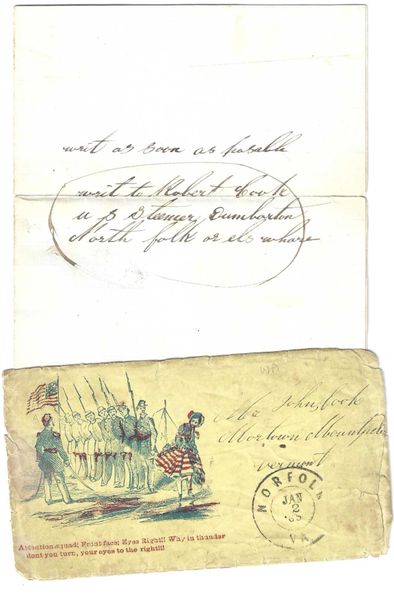 writ as soon as posable
writ to Robert Cook
U S Steemer, Dumbarton
North folk or els whare
Mr John, Cook
Mortown
Vermont
NORFOLK
JAN
2
VA
Attention squad; Front face; Eyes Right!! Why in thunder
dont you turn, your eyes to the right!!!